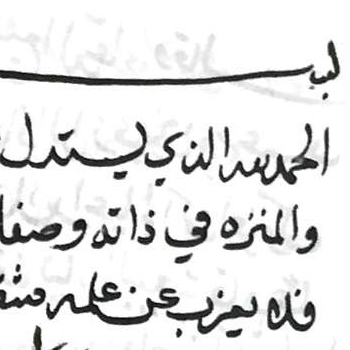 الحمد لله الذي يستدل
والمنزه في ذاته وصفا
فلا يعزب عن علمه مثق